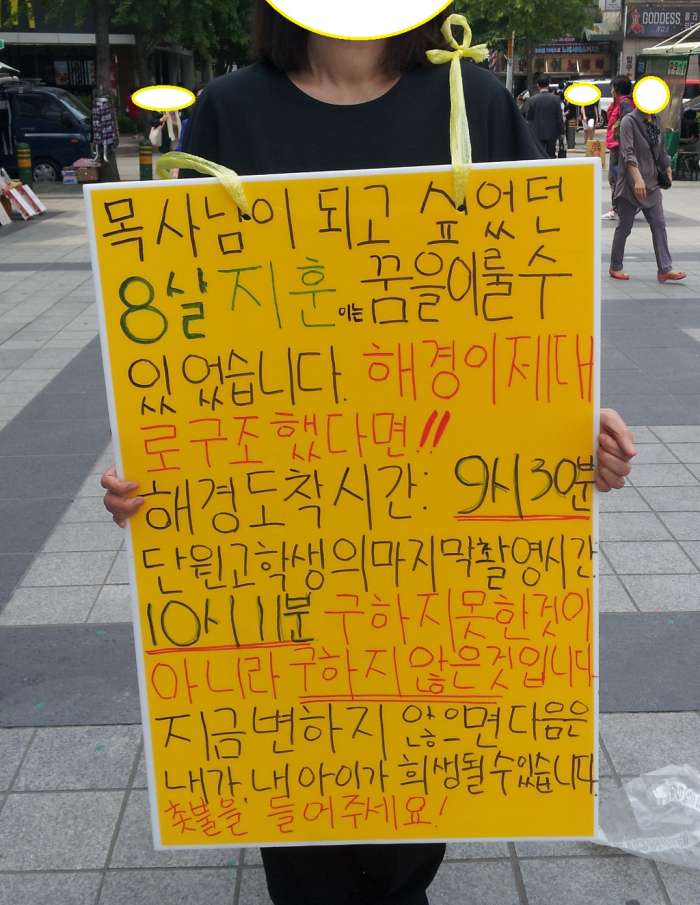 목사님이 되고 싶었던
8살 지훈이는 꿈을이룰수
있었습니다. 해경이제대
로구조했다면!!
해경도착시간: 9시30분
단원고학생의마지막촬영시간
10시11분 구하지못한것이
아니라 구하지않은것입니다
지금변하지 않으면다음은
내가, 내아이가 희생될수있습니다.
촛불을 들어주세요!
GODDESS